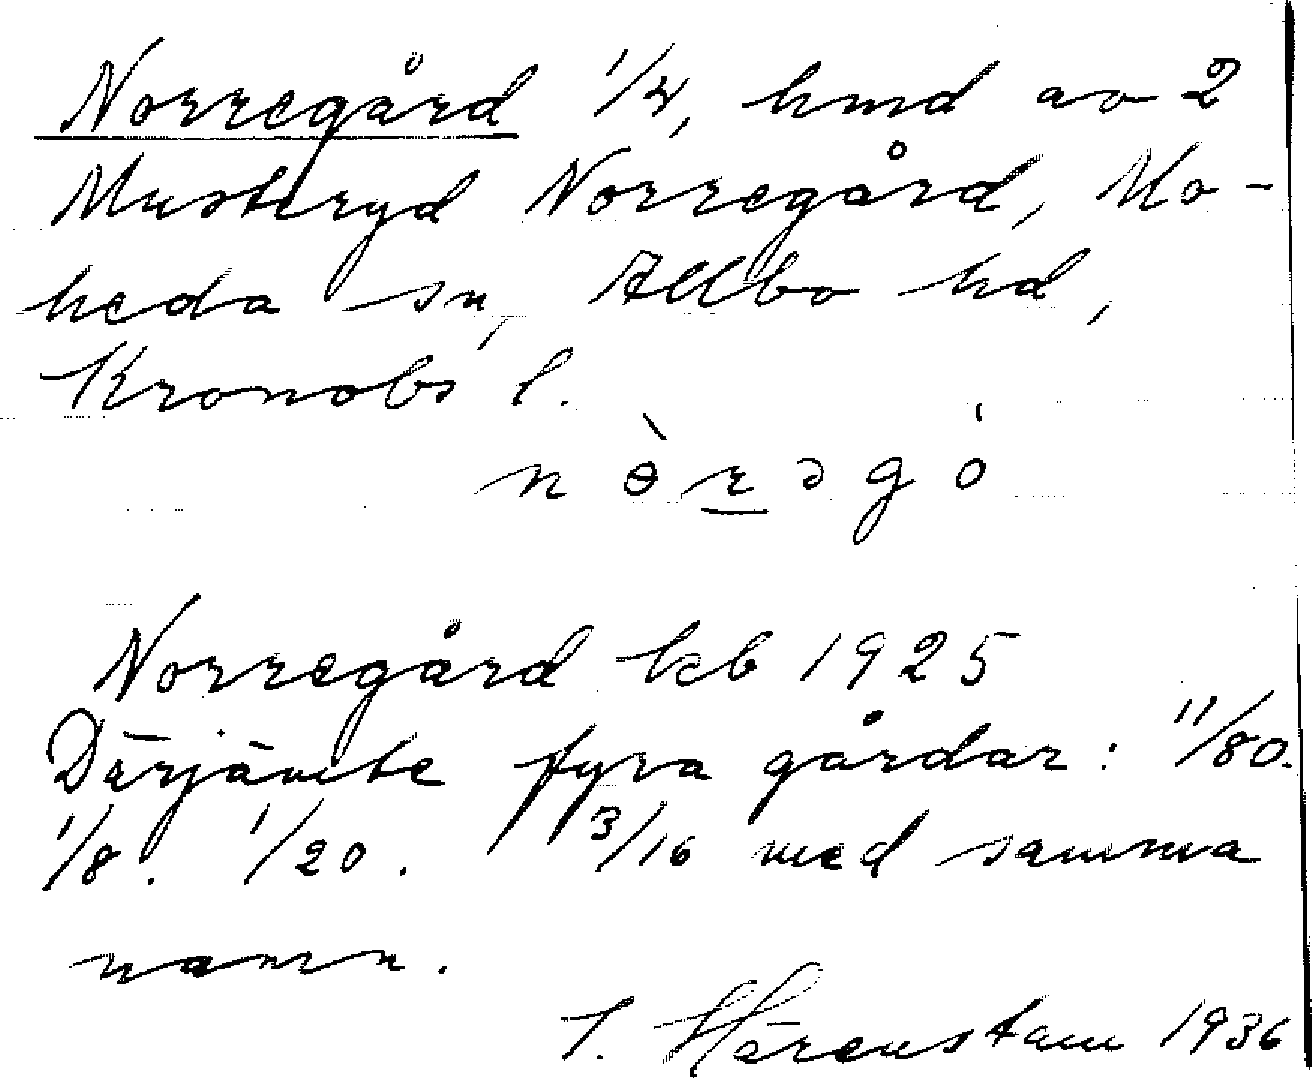 Norregård 1/4, hmd av 2
Musteryd Norregård, Mo-
heda sn, Allbo hd,
Kronobs l.
nɵ̀rəgó
Norregård kb 1925
Därjämte fyra gårdar: 11/80.
1/8. 1/20. 3/16 med samma
namn.
I. Härenstam 1936